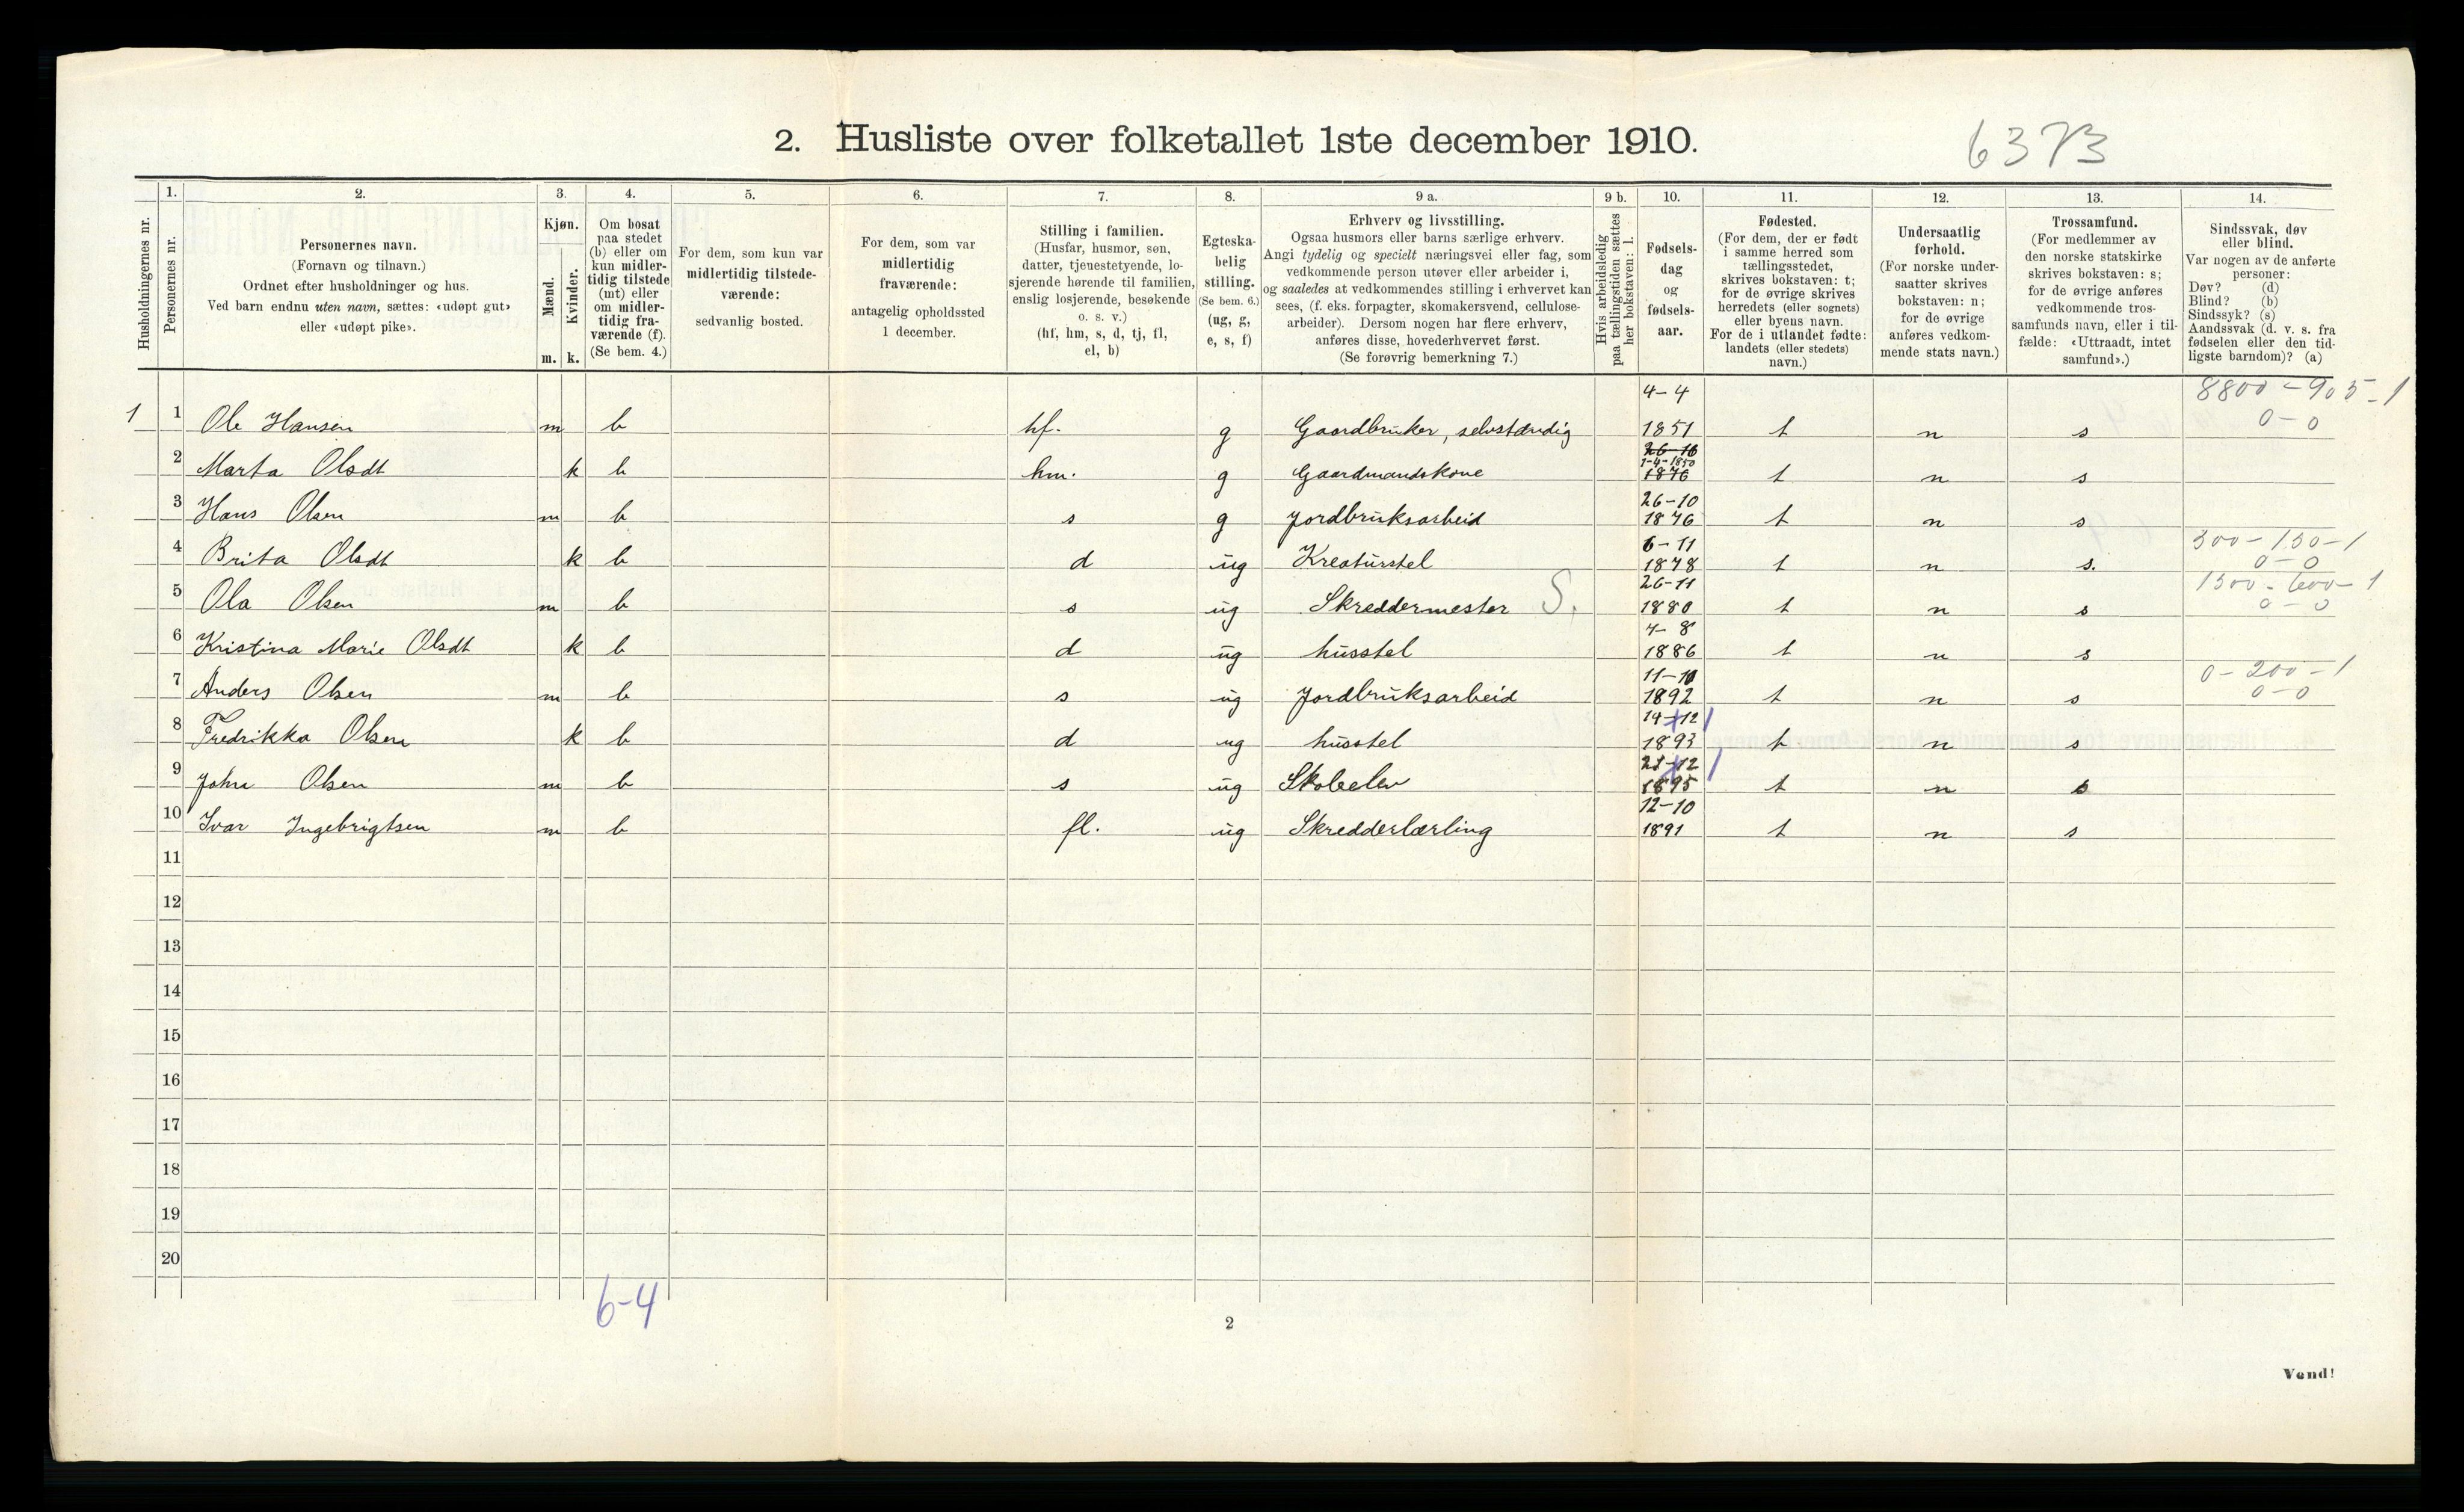 2. Husliste over folketallet 1ste december 1910.
6373
1. 2. 3. 4. 5. 6. 7. 8. 9 a. 9 b. 10. 11. 12. 13. 14.
Husholdningernes nr.
Personernes nr.
Personernes navn.
(Fornavn og tilnavn.)
Ordnet efter husholdninger og hus.
Ved barn endnu uten navn, sættes: «udøpt gut»
eller «udøpt pike».
Kjøn.
Mænd.
Kvinder.
m. k.
Om bosat
paa stedet
(b) eller om
kun midler-
tidig tilstede
(mt) eller
om midler-
tidig fra-
værende (f).
(Se bem. 4.)
For dem, som kun var
midlertidig tilstede-
værende:
sedvanlig bosted.
For dem, som var
midlertidig
fraværende:
antagelig opholdssted
1 december.
Stilling i familien.
(Husfar, husmor, søn,
datter, tjenestetyende, lo-
sjerende hørende til familien,
enslig losjerende, besøkende
o. s. v.)
(hf, hm, s, d, tj, fl,
el, b)
Egteska-
belig
stilling.
(Se bem. 6.)
(ug, g,
e, s, f)
Erhverv og livsstilling.
Ogsaa husmors eller barns særlige erhverv.
Angi tydelig og specielt næringsvei eller fag, som
vedkommende person utøver eller arbeider i,
og saaledes at vedkommendes stilling i erhvervet kan
sees, (f. eks. forpagter, skomakersvend, cellulose-
arbeider). Dersom nogen har flere erhverv,
anføres disse, hovederhvervet først.
(Se forøvrig bemerkning 7.)
Hvis arbeidsledig
paa tællingstiden sættes
her bokstaven: l.
Fødsels-
dag
og
fødsels-
aar.
Fødested.
(For dem, der er født
i samme herred som
tællingsstedet,
skrives bokstaven: t;
for de øvrige skrives
herredets (eller sognets)
eller byens navn.
For de i utlandet fødte:
landets (eller stedets)
navn.)
Undersaatlig
forhold.
(For norske under-
saatter skrives
bokstaven: n;
for de øvrige
anføres vedkom-
mende stats navn.)
Trossamfund.
(For medlemmer av
den norske statskirke
skrives bokstaven: s;
for de øvrige anføres
vedkommende tros-
samfunds navn, eller i til-
fælde: «Uttraadt, intet
samfund».)
Sindssvak, døv
eller blind.
Var nogen av de anførte
personer:
Døv? (d)
Blind? (b)
Sindssyk? (s)
Aandssvak (d. v. s. fra
fødselen eller den tid-
ligste barndom)? (a)
4-4 8800-905-1
1 1 Ole Hansen m b hf. g Gaardbruker, selvstændig 1851 t n s 0-0
26-10
1-4-1850
2 Marta Olsdt k b hm. g Gaardmandskone 1876 t n s
26-10
3 Hans Olsen m b s g Jordbruksarbeid 1876 t n s
6-11 300-150-1
4 Brita Olsdt k b d ug Kreaturstel 1878 t n s. 0-0
26-11 1500-600-1
5 Ola Olsen m b s ug Skreddermester S. 1880 t n s 0-0
4-8
6 Kristina Marie Olsdt k b d ug husstel 1886 t n s
11-10 0-200-1
7 Anders Olsen m b s ug Jordbruksarbeid 1892 t n s 0-0
14-12
8 Fredrikka Olsen k b d ug husstel 1893 t n s
21-12
9 John Olsen m b s ug Skoleelev 1895 t n s
12-10
10 Ivar Ingebrigtsen m b fl. ug Skredderlærling 1891 t n s
11
12
13
14
15
16
17
18
19
20
6-4
2
Vend!